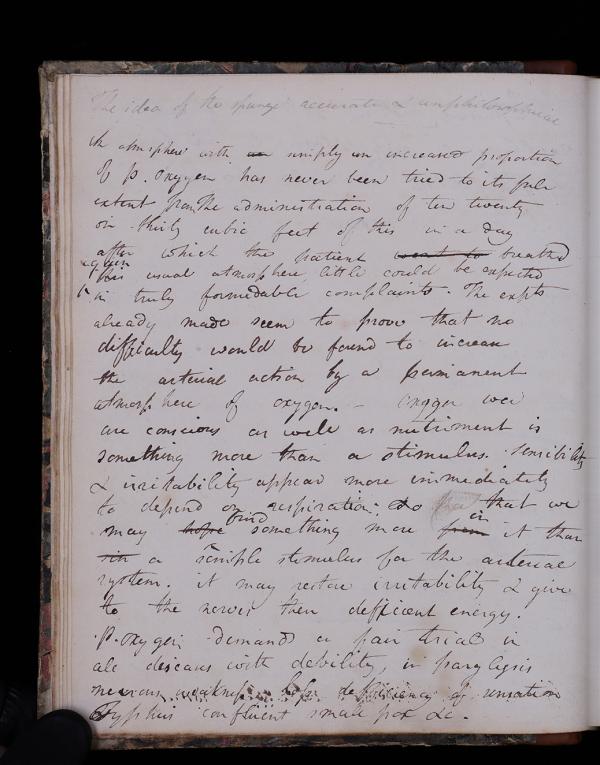 The idea of the sponge accurate & unphilosophical
in atmosphere with an simply an increased proportion
of P. Oxygen has never been tried to its full
extent from the administration of ten twenty
or thirty cubic feet of this in a day
after which the patient went to breathed
again
this usual atmosphere little could be expected
in truly formidable complaints. The expts
already made seem to prove that no
difficulty would be found to increase
the arterial action by a permanent
atmosphere of oxygen. - oxygen we
are conscious as well as nutriment is
something more than a stimulus. Sensibility
& irritability appear more immediately
to depend on respiration: so that we
may hope find something more from in it than
in a simple stimulus for the arterial
system. it may restore irritability & give
to the nerves their defficient energy.
P. oxygen demands a fair trial in
all diseases with debility, in paralysis
nervous weakness defficiency of sensation
Typhus confluent small pox &c.